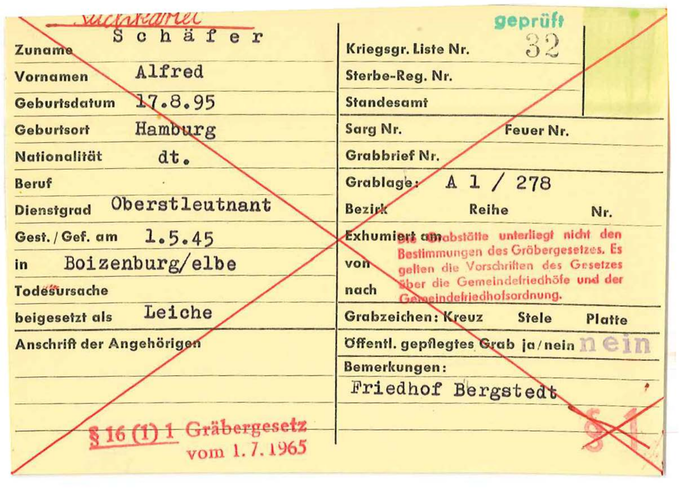 Suchkartei
geprüft
Zuname Schäfer
Vornamen Alfred
Geburtsdatum 17.8.95
Geburtsort Hamburg
Nationalität dt.
Beruf
Dienstgrad Oberstleutnant
Gest./Gef. am 1.5.45
in Boizenburg/elbe
Todesursache
beigesetzt als Leiche
Anschrift der Angehörigen
§ 16 (1) 1 Gräbergesetz
vom 1.7.1965
Kriegsgr. Liste Nr. 32
Sterbe-Reg. Nr.
Standesamt
Sarg Nr. Feuer Nr.
Grabbrief Nr.
Grablage: A 1 / 278
Bezirk Reihe Nr.
Exhumiert am
von
nach
Die Grabstätte unterliegt nicht den
Bestimmungen des Gräbergesetzes. Es
gelten die Vorschriften des Gesetzes
über die Gemeindefriedhöfe und der
Gemeindefriedhofsordnung.
Grabzeichen: Kreuz Stele Platte
Öffentl. gepflegtes Grab ja/nein nein
Bemerkungen:
Friedhof Bergstedt
§ 1